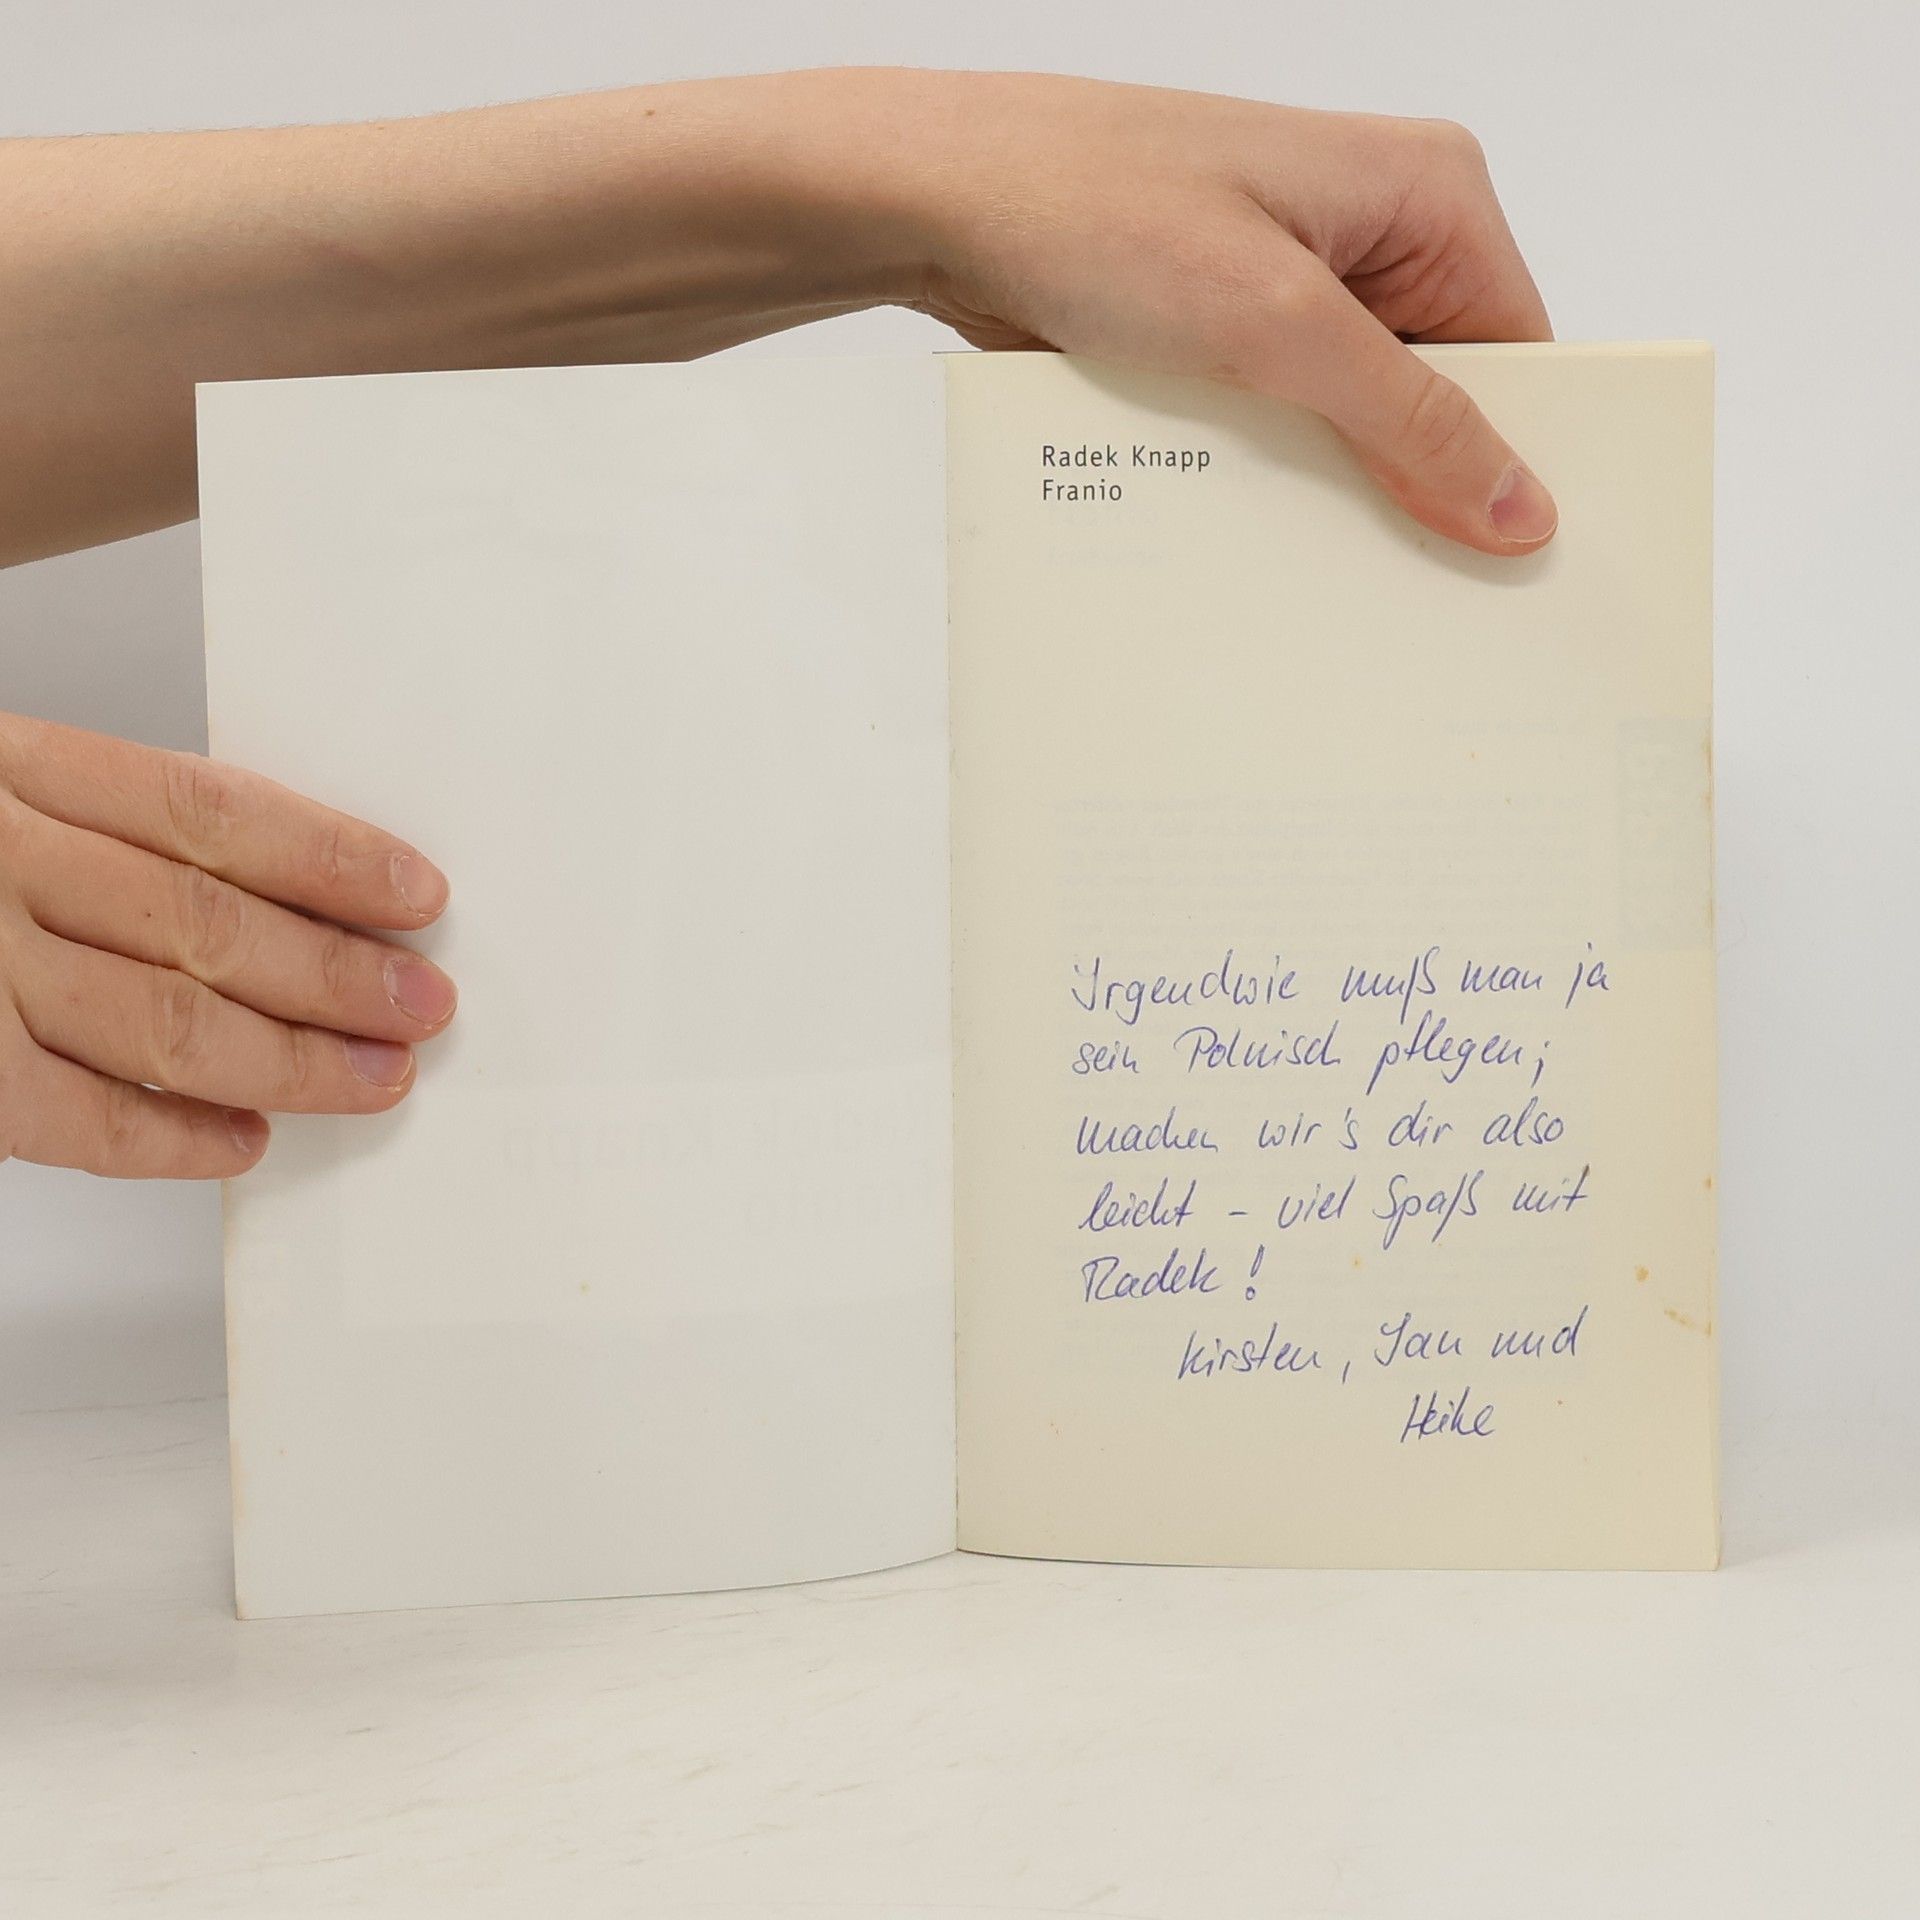 Radek Knapp
Franio
Irgendwie muß man ja
sein Polnisch pflegen;
machen wir's dir also
leicht – viel Spaß mit
Radek!
Kirsten, Jan und
Heike